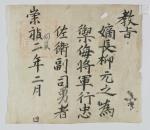 教旨
嫡長柳元之爲
禦侮將軍行忠
佐衛副司勇者
崇禎二年二月 日